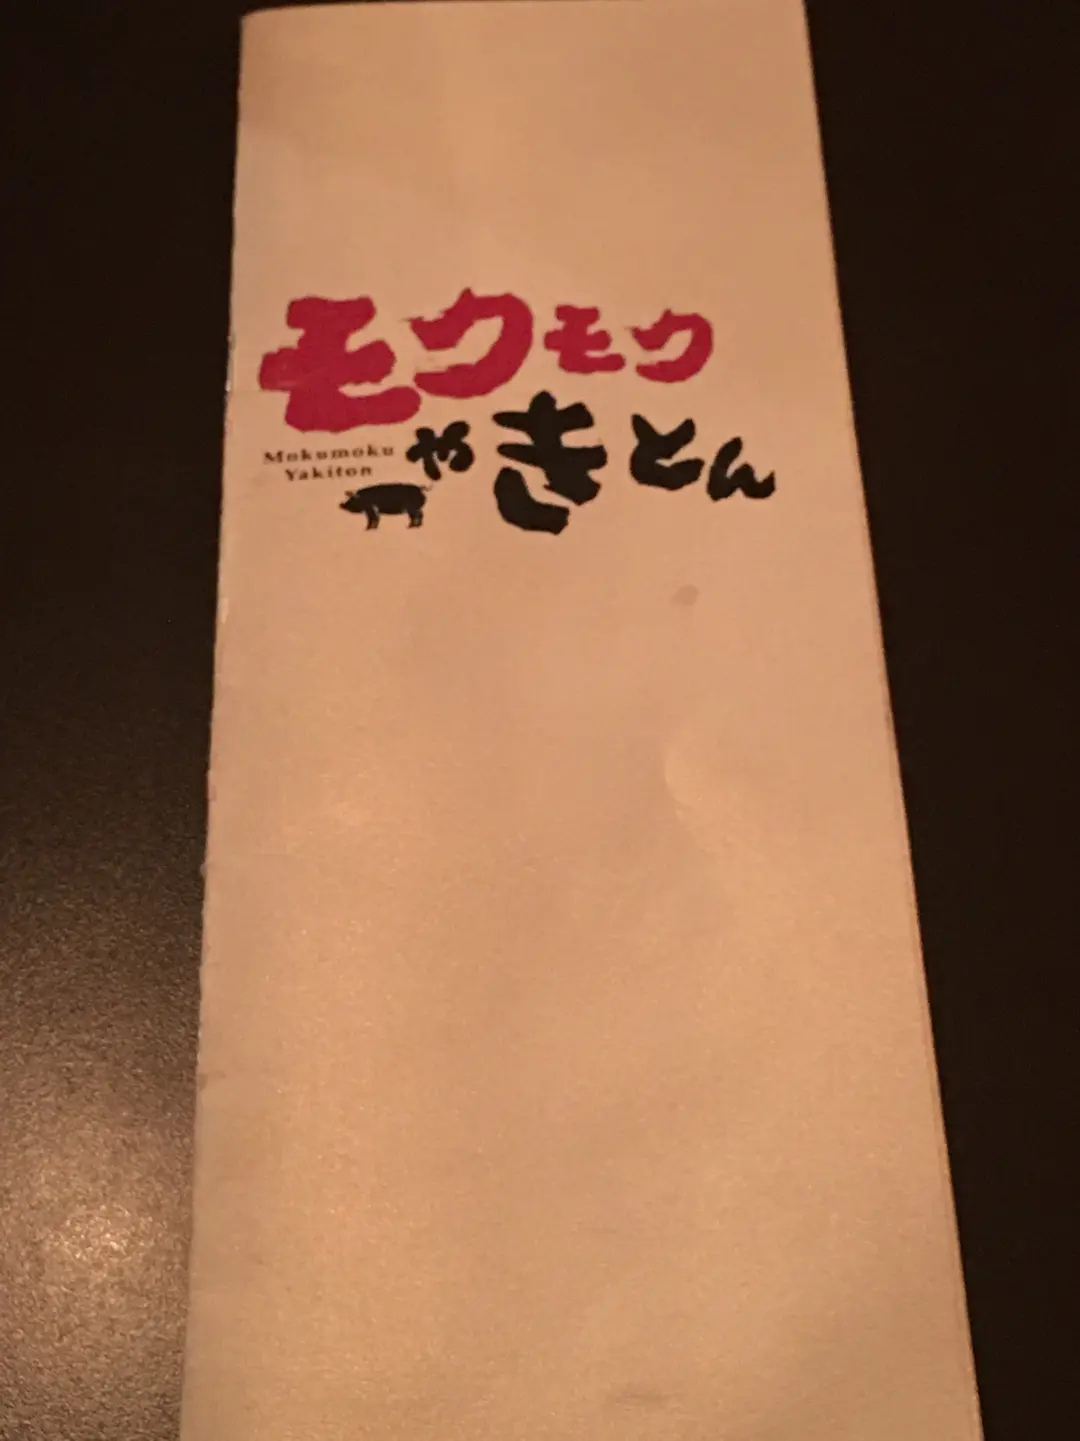 モクモク
やきとん
Mokumoku
Yakiton